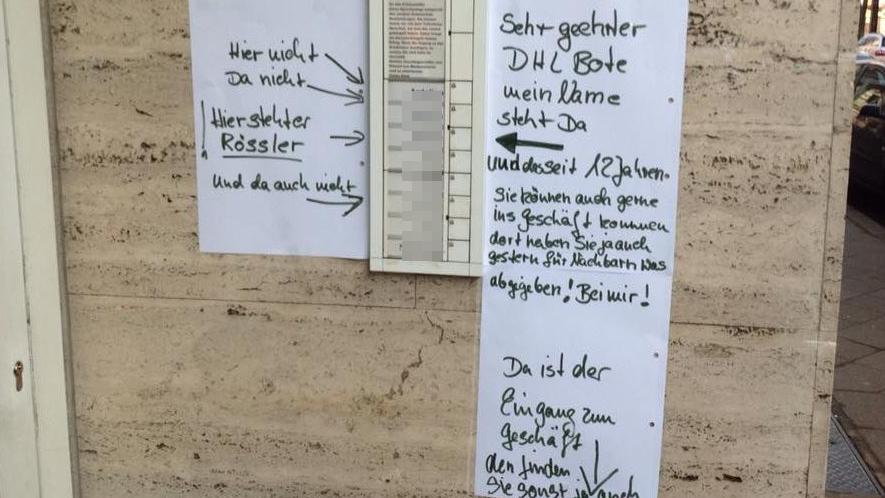 Hier nicht
Da nicht
! Hier stehter
Rössler
und da auch nicht
Sehr geehrter
DHL Bote
mein Name
steht Da
und das seit 12 Jahren.
Sie können auch gerne
ins Geschäft kommen
dort haben Sie ja auch
gestern für Nachbarn was
abgegeben! Bei mir!
Da ist der
Eingang zum
Geschäft
den finden
Sie sonst ja auch